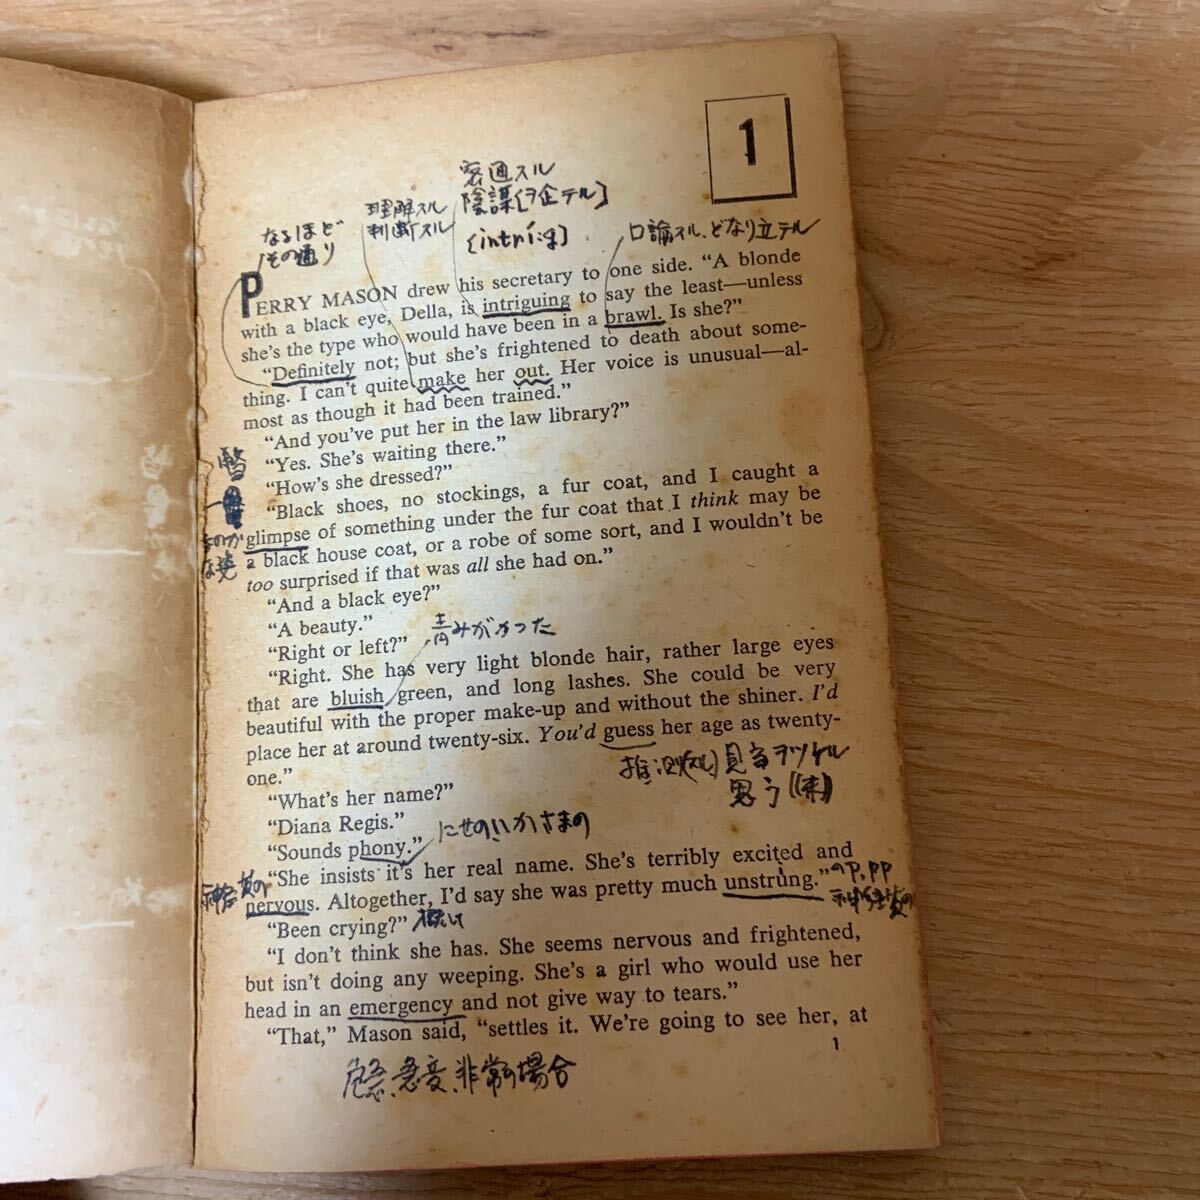 1
密通スル
陰謀[ヲ企テル]
[intrí:g]
理解スル
判断スル
なるほど
その通り
口論スル、どなり立テル
PERRY MASON drew his secretary to one side. “A blonde
with a black eye, Della, is intriguing to say the least—unless
she’s the type who would have been in a brawl. Is she?”
“Definitely not; but she’s frightened to death about some-
thing. I can’t quite make her out. Her voice is unusual—al-
most as though it had been trained.”
“And you’ve put her in the law library?”
“Yes. She’s waiting there.”
“How’s she dressed?”
“Black shoes, no stockings, a fur coat, and I caught a
glimpse of something under the fur coat that I think may be
a black house coat, or a robe of some sort, and I wouldn’t be
too surprised if that was all she had on.”
“And a black eye?”
“A beauty.”
“Right or left?”
青みがかった
“Right. She has very light blonde hair, rather large eyes
that are bluish green, and long lashes. She could be very
beautiful with the proper make-up and without the shiner. I’d
place her at around twenty-six. You’d guess her age as twenty-
one.”
推測(スル) 見当ヲツケル
思う (米)
“What’s her name?”
“Diana Regis.”
“Sounds phony.”
にせの、いかさまの
“She insists it’s her real name. She’s terribly excited and
nervous. Altogether, I’d say she was pretty much unstrung.”
のP, PP
“Been crying?”
“I don’t think she has. She seems nervous and frightened,
but isn’t doing any weeping. She’s a girl who would use her
head in an emergency and not give way to tears.”
“That,” Mason said, “settles it. We’re going to see her, at
1
危急、急変、非常の場合